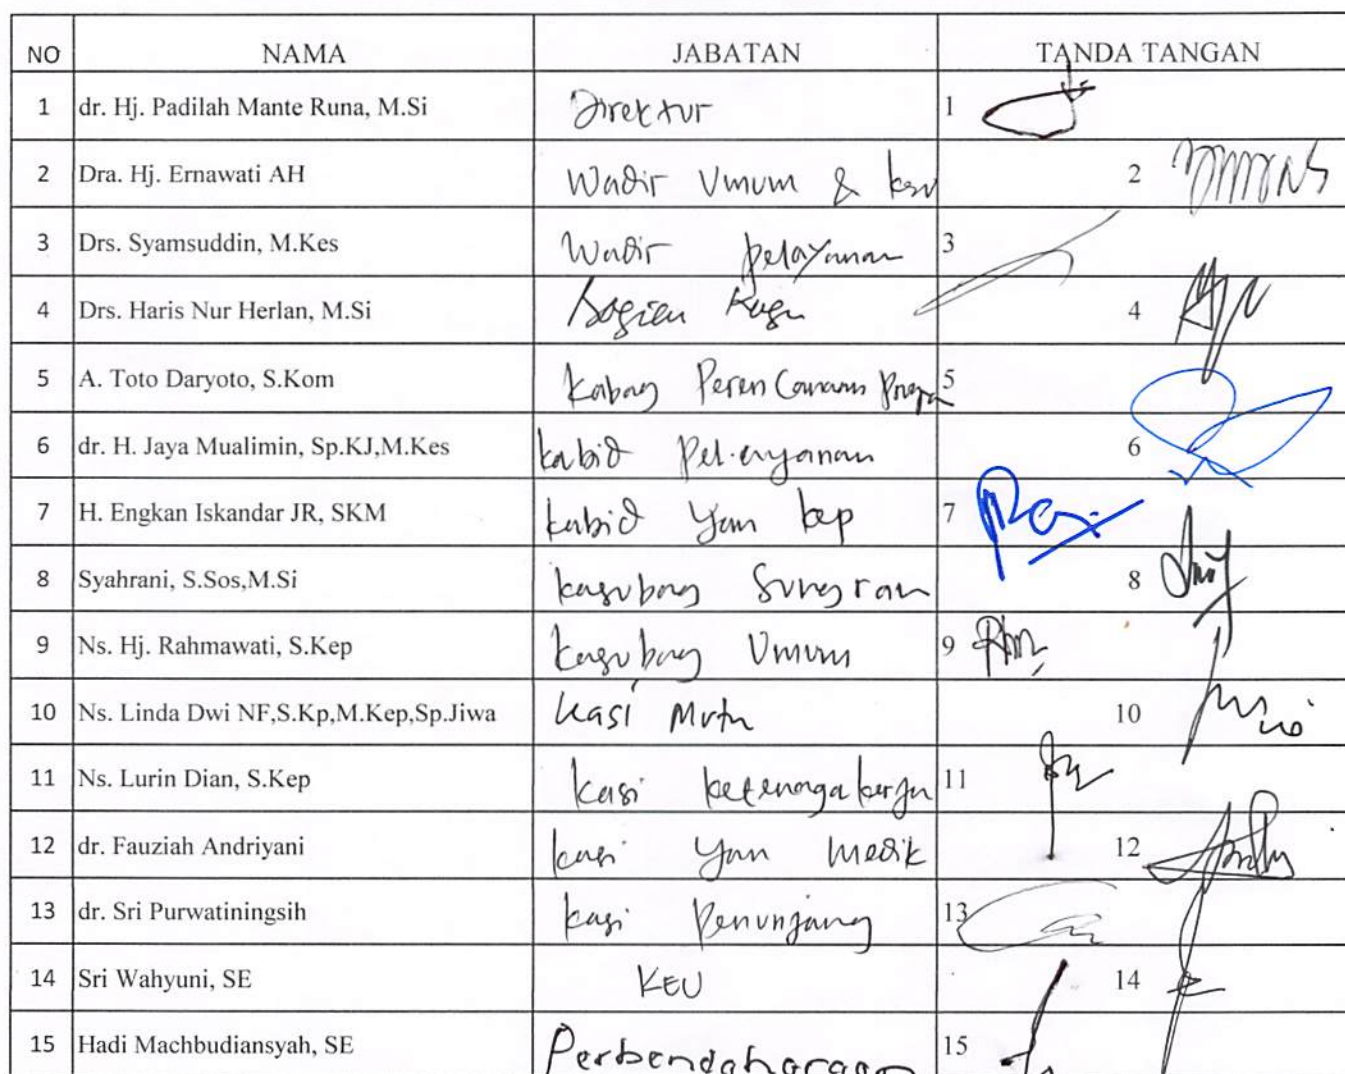 NO NAMA JABATAN TANDA TANGAN
1 dr. Hj. Padilah Mante Runa, M.Si Direktur 1
2 Dra. Hj. Ernawati AH Wadir Umum & keu 2
3 Drs. Syamsuddin, M.Kes Wadir pelayanan 3
4 Drs. Haris Nur Herlan, M.Si Bagian 4
5 A. Toto Daryoto, S.Kom Kabag Perencanaan 5
6 dr. H. Jaya Mualimin, Sp.KJ,M.Kes kabid Pelayanan 6
7 H. Engkan Iskandar JR, SKM kabid Yan kep 7
8 Syahrani, S.Sos,M.Si kasubbag Sungram 8
9 Ns. Hj. Rahmawati, S.Kep kasubbag Umum 9
10 Ns. Linda Dwi NF,S.Kp,M.Kep,Sp.Jiwa Kasi Mutu 10
11 Ns. Lurin Dian, S.Kep kasi 11
12 dr. Fauziah Andriyani kasi Yan medik 12
13 dr. Sri Purwatiningsih kasi Penunjang 13
14 Sri Wahyuni, SE KEU 14
15 Hadi Machbudiansyah, SE Perbendaharaan 15